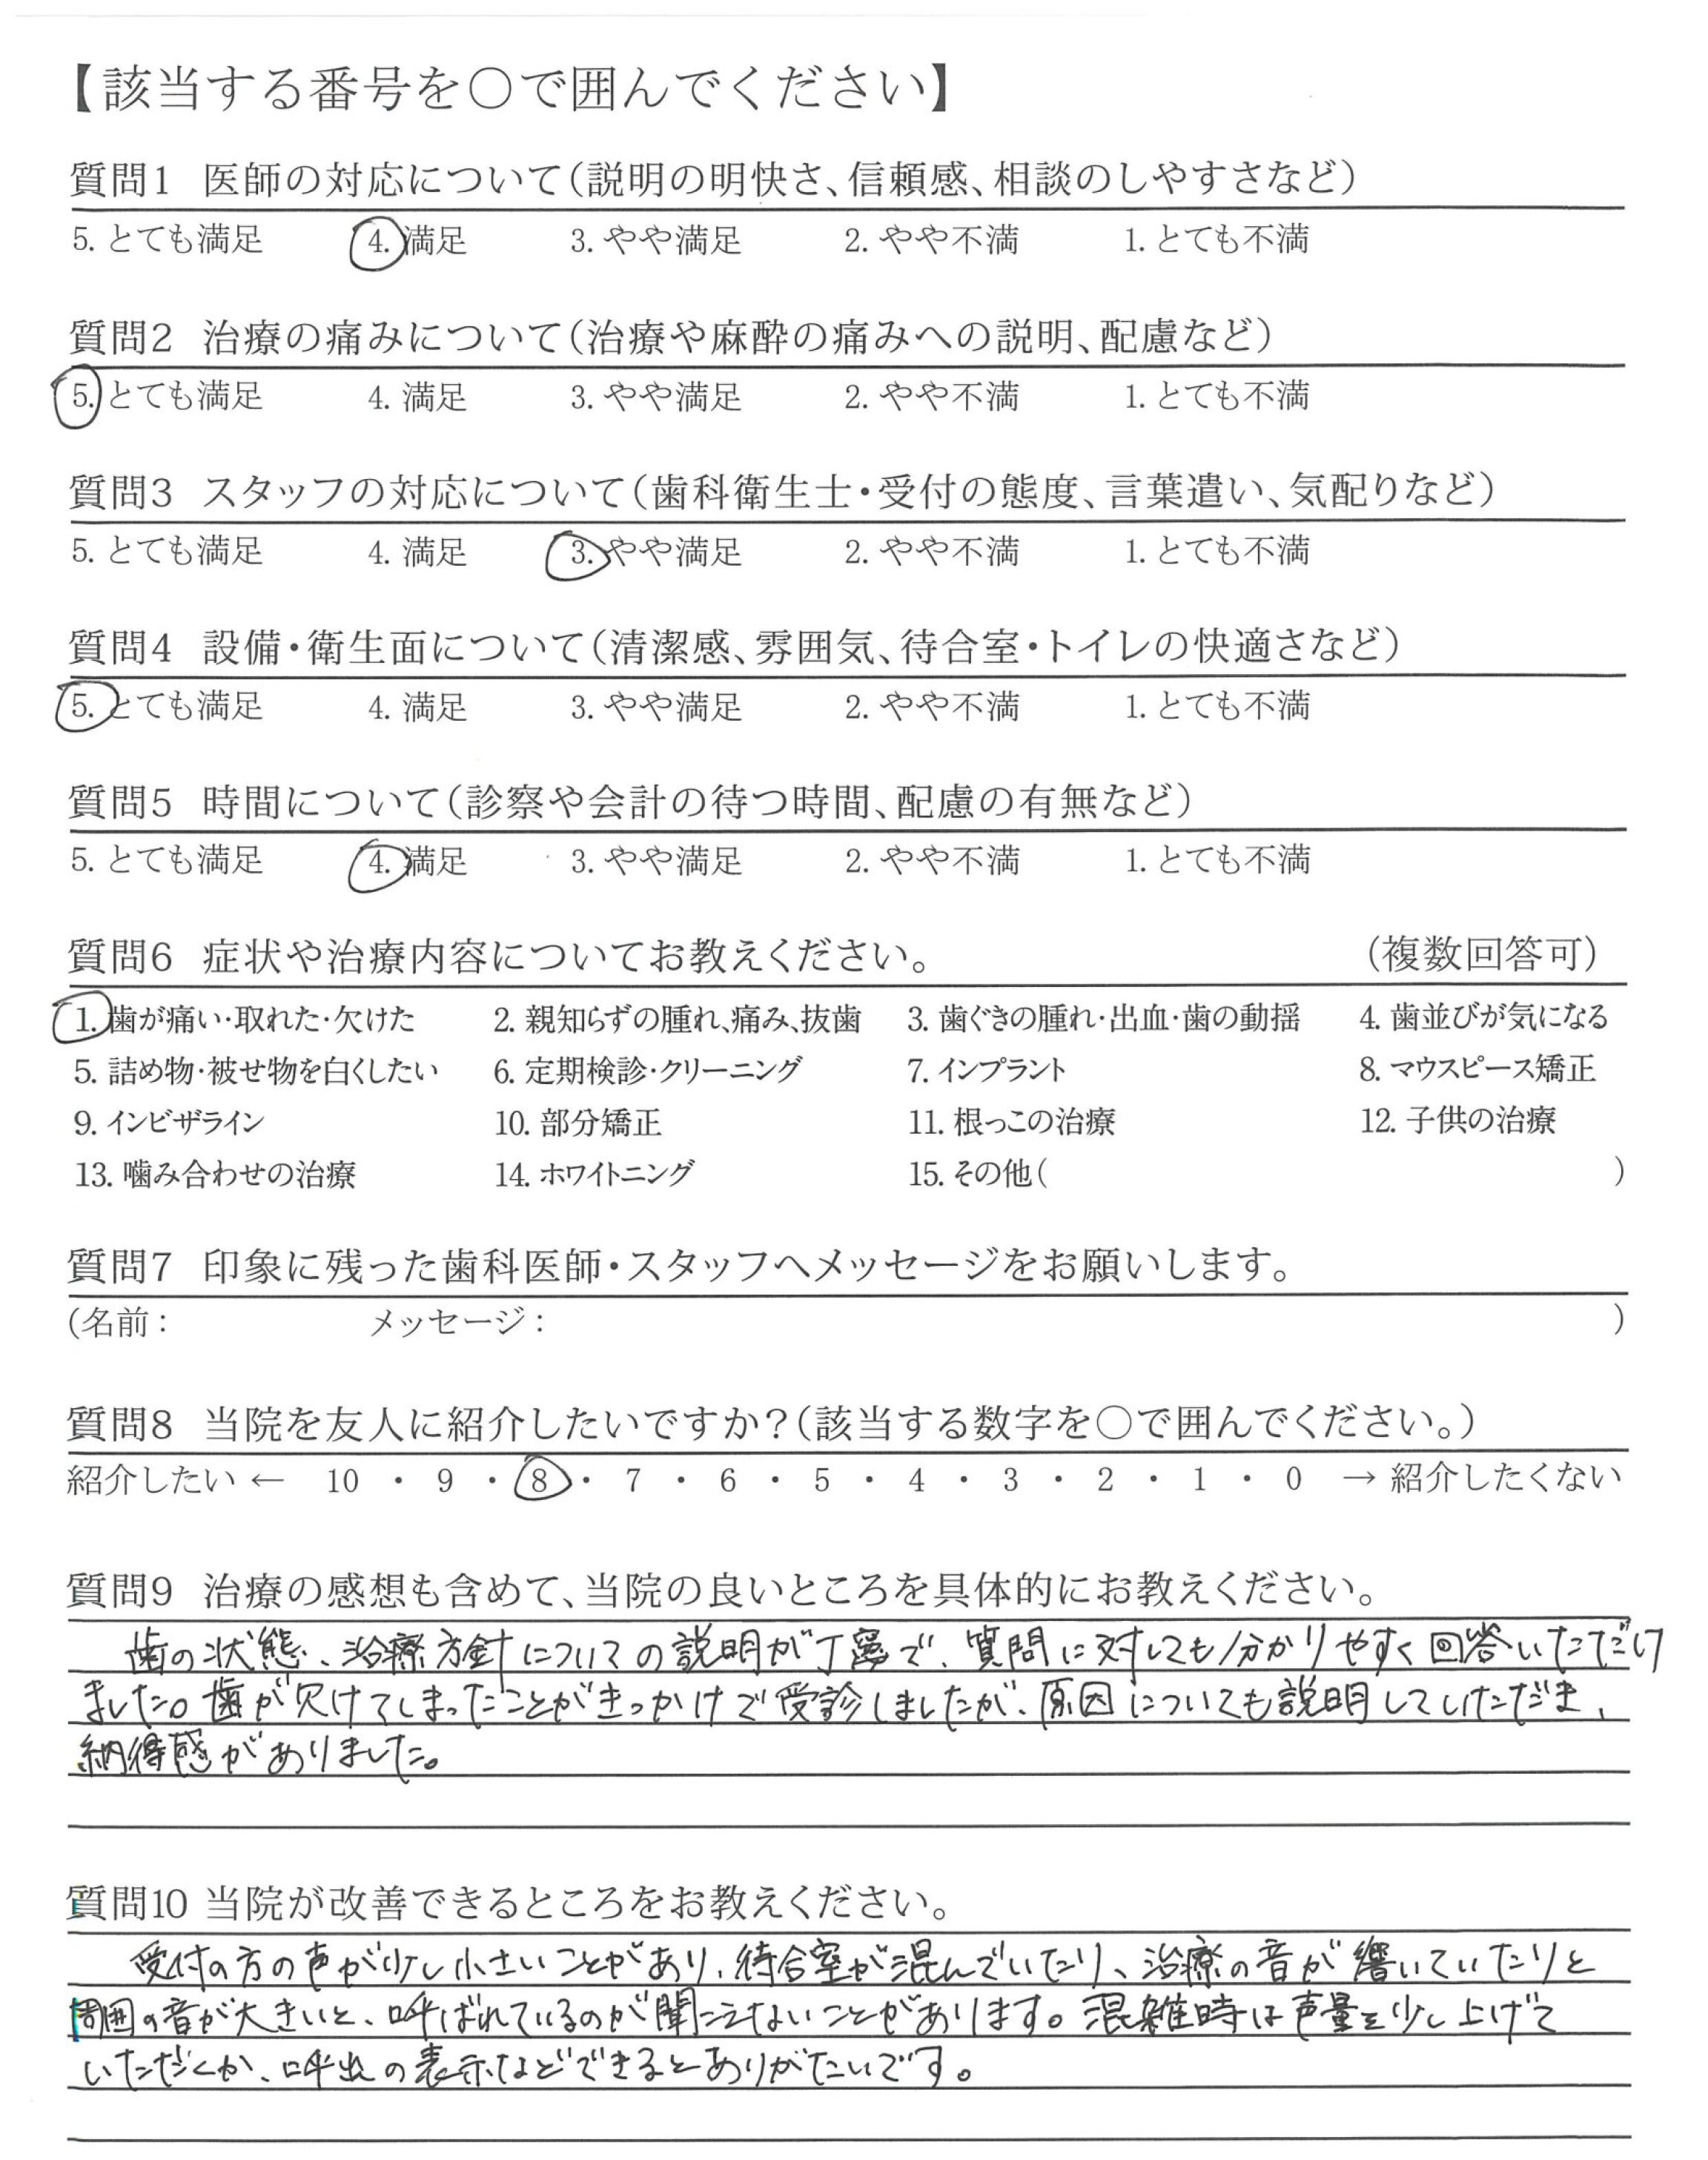 【該当する番号を○で囲んでください】
質問1 医師の対応について（説明の明快さ、信頼感、相談のしやすさなど）
5. とても満足 4. 満足 3. やや満足 2. やや不満 1. とても不満
質問2 治療の痛みについて（治療や麻酔の痛みへの説明、配慮など）
5. とても満足 4. 満足 3. やや満足 2. やや不満 1. とても不満
質問3 スタッフの対応について（歯科衛生士・受付の態度、言葉遣い、気配りなど）
5. とても満足 4. 満足 3. やや満足 2. やや不満 1. とても不満
質問4 設備・衛生面について（清潔感、雰囲気、待合室・トイレの快適さなど）
5. とても満足 4. 満足 3. やや満足 2. やや不満 1. とても不満
質問5 時間について（診察や会計の待つ時間、配慮の有無など）
5. とても満足 4. 満足 3. やや満足 2. やや不満 1. とても不満
質問6 症状や治療内容についてお教えください。 （複数回答可）
1. 歯が痛い・取れた・欠けた 2. 親知らずの腫れ、痛み、抜歯 3. 歯ぐきの腫れ・出血・歯の動揺 4. 歯並びが気になる
5. 詰め物・被せ物を白くしたい 6. 定期検診・クリーニング 7. インプラント 8. マウスピース矯正
9. インビザライン 10. 部分矯正 11. 根っこの治療 12. 子供の治療
13. 噛み合わせの治療 14. ホワイトニング 15. その他（ ）
質問7 印象に残った歯科医師・スタッフへメッセージをお願いします。
（名前： メッセージ： ）
質問8 当院を友人に紹介したいですか？（該当する数字を○で囲んでください。）
紹介したい ← 10 ・ 9 ・ 8 ・ 7 ・ 6 ・ 5 ・ 4 ・ 3 ・ 2 ・ 1 ・ 0 → 紹介したくない
質問9 治療の感想も含めて、当院の良いところを具体的にお教えください。
歯の状態、治療方針についての説明が丁寧で、質問に対しても分かりやすく回答いただけ
ました。歯が欠けてしまったことがきっかけで受診しましたが、原因についても説明していただき、
納得感がありました。
質問10 当院が改善できるところをお教えください。
受付の方の声が少し小さいことがあり、待合室が混んでいたり、治療の音が響いていたりと
周囲の音が大きいと、呼ばれているのが聞こえないことがあります。混雑時は声量を少し上げて
いただくか、呼出の表示などできるとありがたいです。